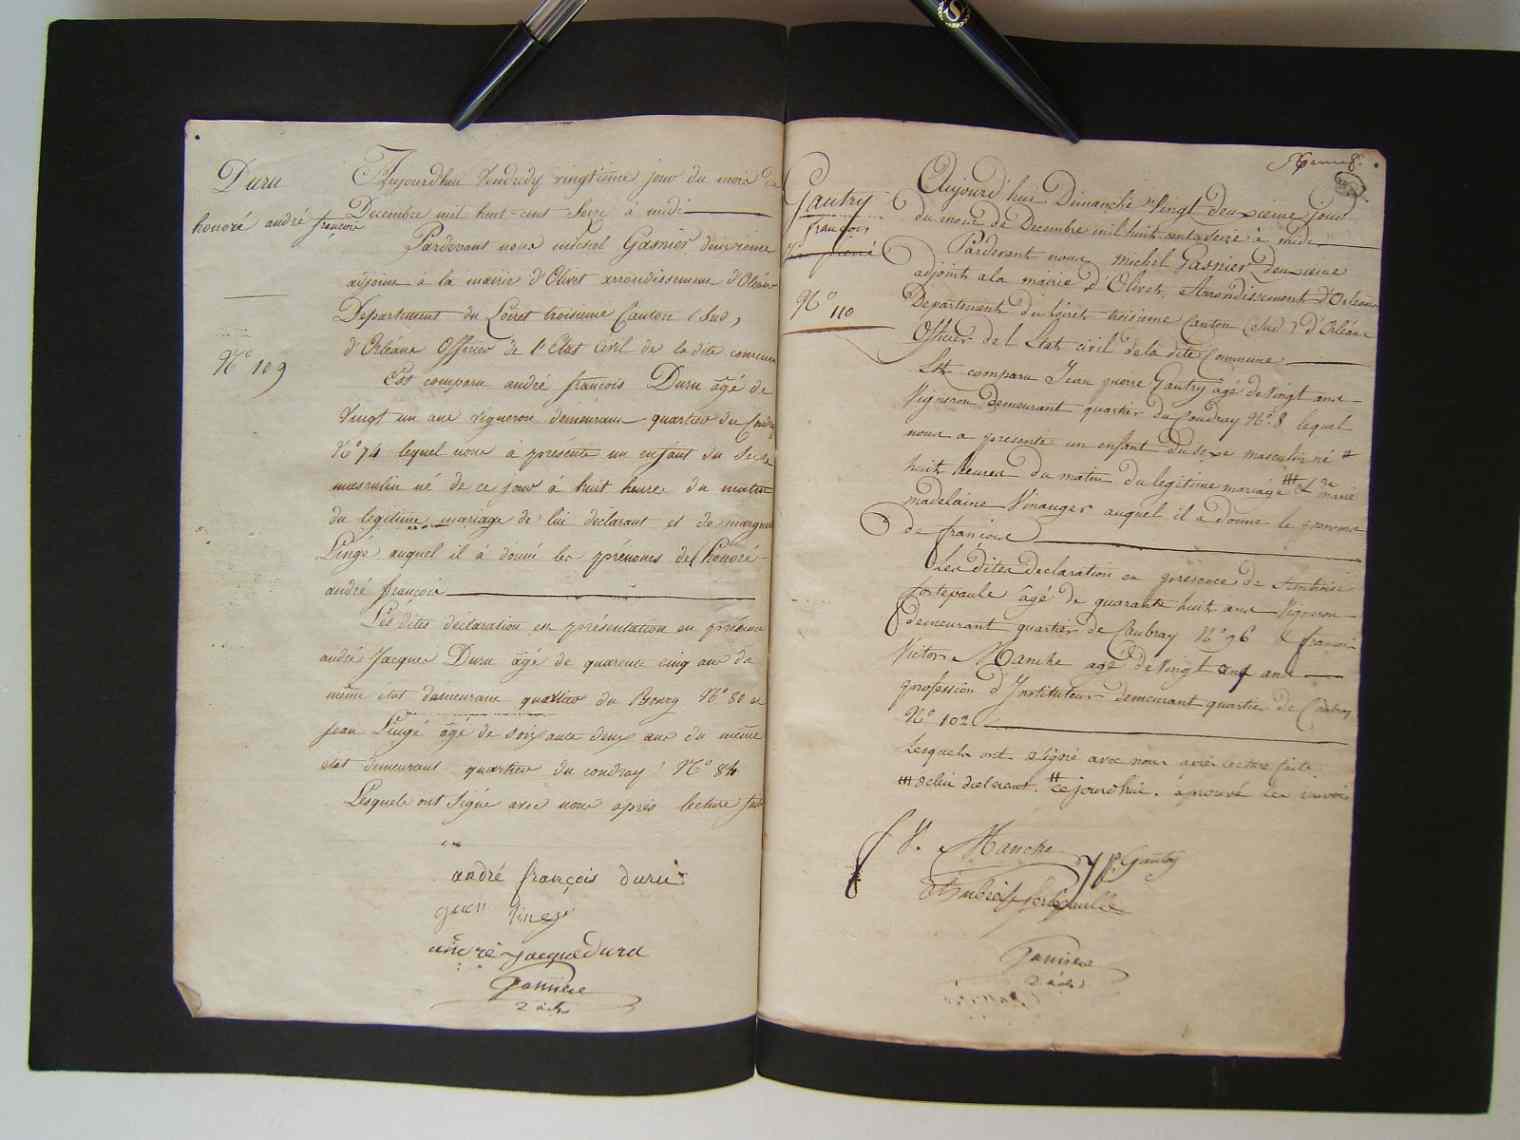 Duru
honoré andré françois
N° 109
Aujourdhui Vendredy vingtieme jour du mois de
Decembre mil huit-cent-Seize à midi
Pardevant nous michel Gasnier deuxieme
adjoint à la mairie d'Olivet arrondissement d'Orléans
Département du Loiret troisieme Canton (Sud)
d'Orléans Officier de l'Etat Civil de la dite commune
Est comparu andré françois Duru âgé de
Vingt un ans vigneron demeurant quartier du Coudray
N° 74 lequel nous à présenté un enfant du Sexe
masculin né de ce jour à huit heure du matin
du legitime mariage de lui declarant et de
Lingé auquel il à donné les prénoms de honoré
andré françois
Les dites déclaration et présentation en présence
andré Jacques Duru âgé de quarente cinq ans du
même état demeurant quartier du Bourg N° 80 et
jean Lingé âgé de soixante deux ans du même
etat demeurant quartier du coudray N° 84
Lesquels ont Signé avec nous après lecture fait
andré françois duru
jean linegé
andré jacque Duru
Gasnier
2 adj
Gautry
françois
N° 110
Aujourd'hui Dimanche Vingt deuxieme jour
du mois de Decembre mil huit-cent-seize à midi
Pardevant nous michel Gasnier deuxieme
adjoint a la mairie d'Olivet, Arrondissement d'Orleans
Departement du Loiret troisieme Canton (Sud) d'Orléans
Officier de l Etat civil de la dite Commune
Est comparu Jean pierre Gautry âgé de vingt ans
Vigneron demeurant quartier du Coudray N° 8 lequel
nous a présenté un enfant du sexe masculin né #
huit heures du matin du legitime mariage # et de marie
madelaine Vinauger auquel il a donné le prenoms
de francois
Les dites declaration en présence de Ambroise
fortepaule âgé de quarante huit ans Vigneron
demeurant quartier de Caubray N° 96 & francois
Victor Manche agé de Vingt ans
profession d'Instituteur demeurant quartier de Caubray
N° 102
Lesquels ont signé avec nous après lecture faite
# de lui declarant. # ce jourd'hui. aprouvé les renvois
f V. Manche
J p. Gautry
Gasnier
2 adj